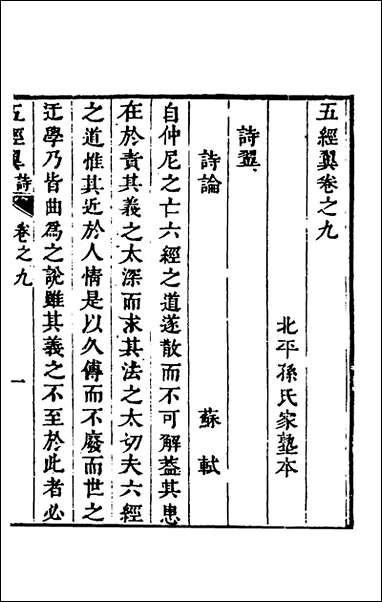 五經翼卷之九
北平孫氏家塾本
詩翼
詩論　蘇軾
自仲尼之亡六經之道遂散而不可解葢其患
在於責其義之太深而求其法之太切夫六經
之道惟其近於人情是以久傳而不廢而世之
迂學乃皆曲爲之說雖其義之不至於此者必
五經翼　詩　卷之九　一